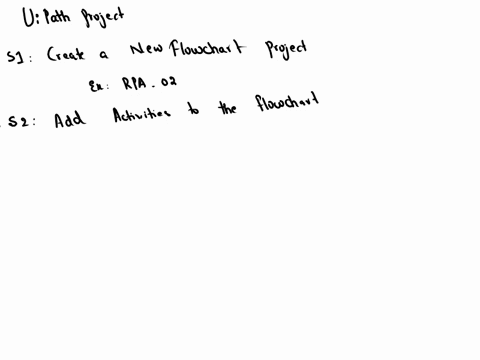 Ui Path Project
S1: Create a New flowchart Project
Ex: RPA.02
S2: Add Activities to the flowchart